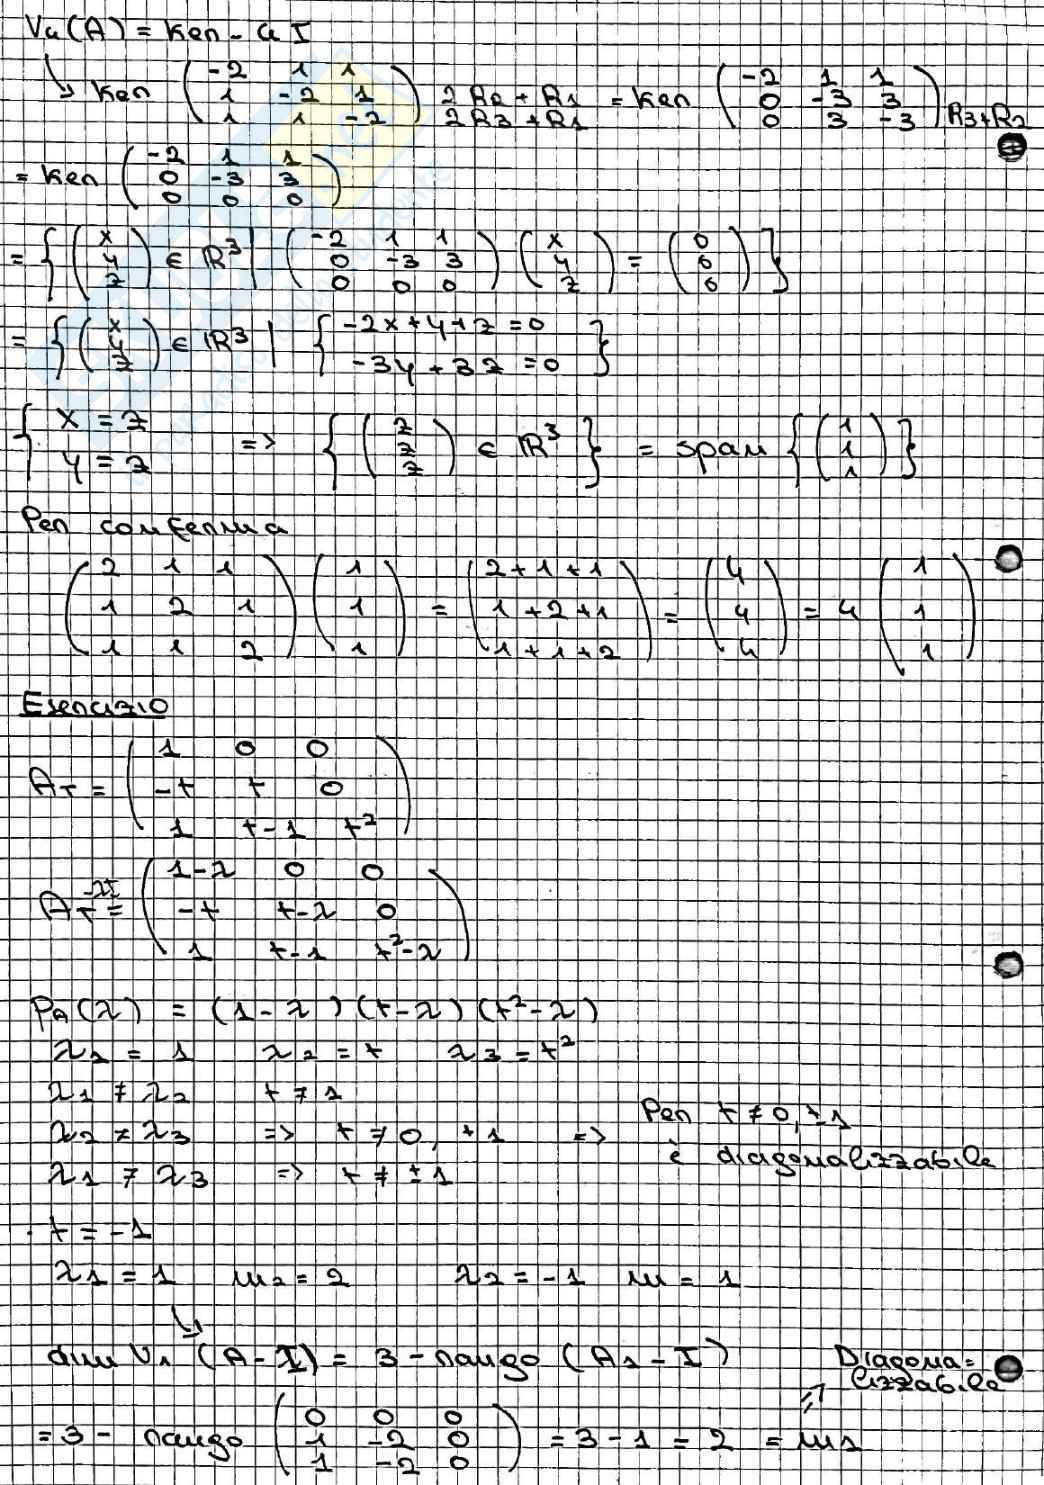 V₄(A) = Ker - 4I
↘ Ker (-2 1 1; 1 -2 1; 1 1 -2) 2R2+R1 2R3+R1 = Ker (-2 1 1; 0 -3 3; 0 3 -3) R3+R2
= Ker (-2 1 1; 0 -3 3; 0 0 0)
= {(x; y; z) ∈ R³ | (-2 1 1; 0 -3 3; 0 0 0) (x; y; z) = (0; 0; 0)}
= {(x; y; z) ∈ R³ | {-2x+y+z=0; -3y+3z=0}
{x=z; y=z => {(z; z; z) ∈ R³} = span {(1; 1; 1)}
Per conferma
(2 1 1; 1 2 1; 1 1 2) (1; 1; 1) = (2+1+1; 1+2+1; 1+1+2) = (4; 4; 4) = 4 (1; 1; 1)
Esercizio
A_T = (1 0 0; -t t 0; 1 t-1 t²)
A_T -λI = (1-λ 0 0; -t t-λ 0; 1 t-1 t²-λ)
P_A(λ) = (1-λ)(t-λ)(t²-λ)
λ₁ = 1 λ₂ = t λ₃ = t²
λ₁ ≠ λ₂ t ≠ 1
λ₂ ≠ λ₃ => t ≠ 0, +1 => Per t ≠ 0, ±1
λ₁ ≠ λ₃ => t ≠ ±1 è diagonalizzabile
· t = -1
λ₁ = 1 m₁ = 2 λ₂ = -1 m = 1
↘
dim V₁ (A-I) = 3 - rango (A₁-I) Diagona=lizzabile
= 3 - rango (0 0 0; 1 -2 0; 1 -2 0) = 3-1 = 2 = m₁